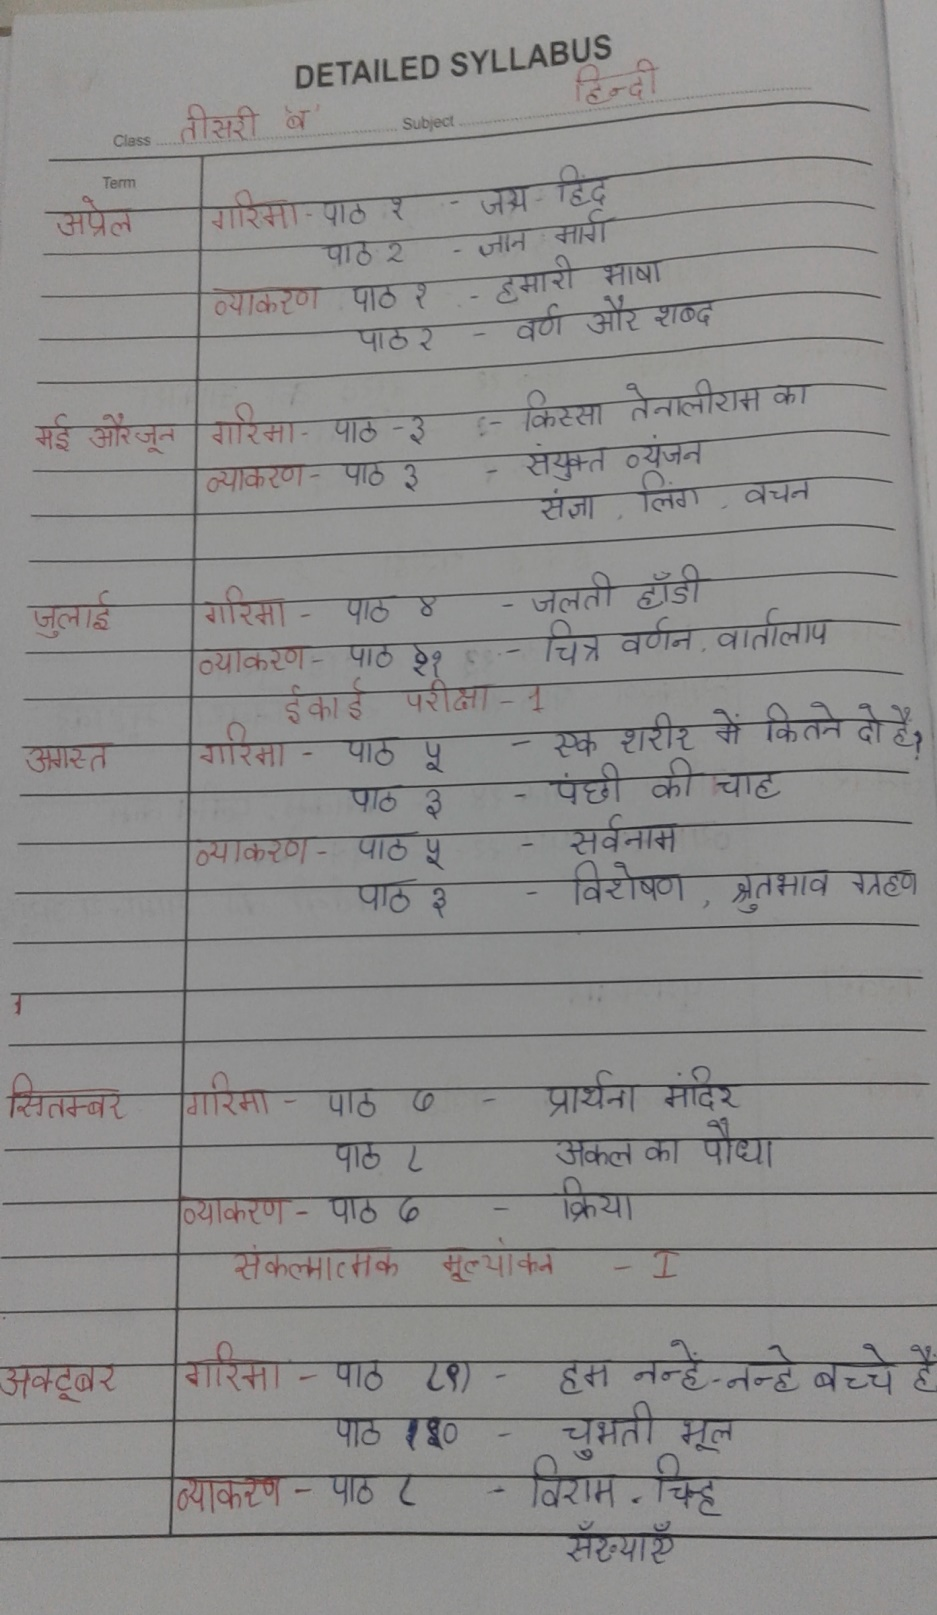 DETAILED SYLLABUS
Class तीसरी 'ब' Subject हिन्दी
Term
अप्रेल गरिमा - पाठ १ - जय - हिंद
पाठ २ - जान मार्ग
व्याकरण पाठ १ - हमारी भाषा
पाठ २ - वर्ण और शब्द
मई और जून गरिमा - पाठ - ३ :- किस्सा तेनालीराम का
व्याकरण - पाठ ३ - संयुक्त व्यंजन
संज्ञा , लिंग , वचन
जुलाई गरिमा - पाठ ४ - जलती हाँडी
व्याकरण - पाठ २१ - चित्र वर्णन, वार्तालाप
ईकाई परीक्षा - 1
अगस्त गरिमा - पाठ ५ - एक शरीर में कितने दो है?
पाठ ३ - पंछी की चाह
व्याकरण - पाठ ५ - सर्वनाम
पाठ ३ - विशेषण , श्रुतभाव ग्रहण
सितम्बर गरिमा - पाठ ७ - प्रार्थना मंदिर
पाठ ८ अकल का पौधा
व्याकरण - पाठ ७ - क्रिया
संकल्मात्मक मूल्यांकन - I
अक्टूबर गरिमा - पाठ ८९) - हम नन्हें-नन्हे बच्चे हैं
पाठ १० - चुभती भूल
व्याकरण - पाठ ८ - विराम - चिन्ह
सँख्याएँ